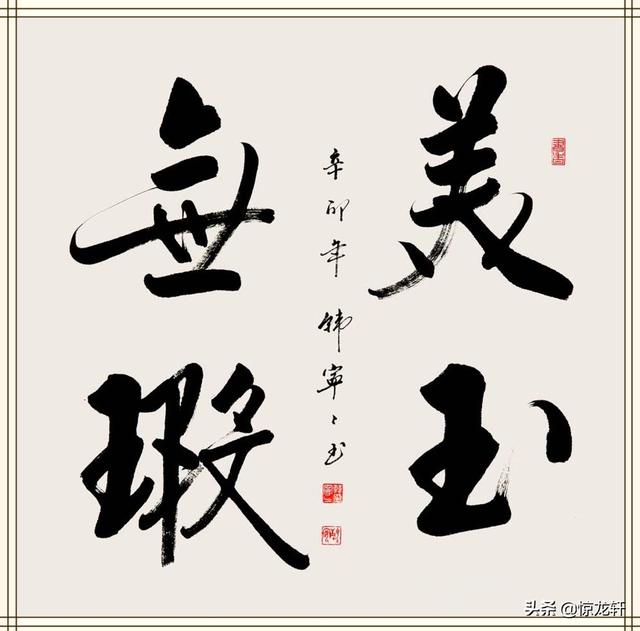 美玉
無瑕
辛卯年 韓寧〻
头条 @惊龙轩